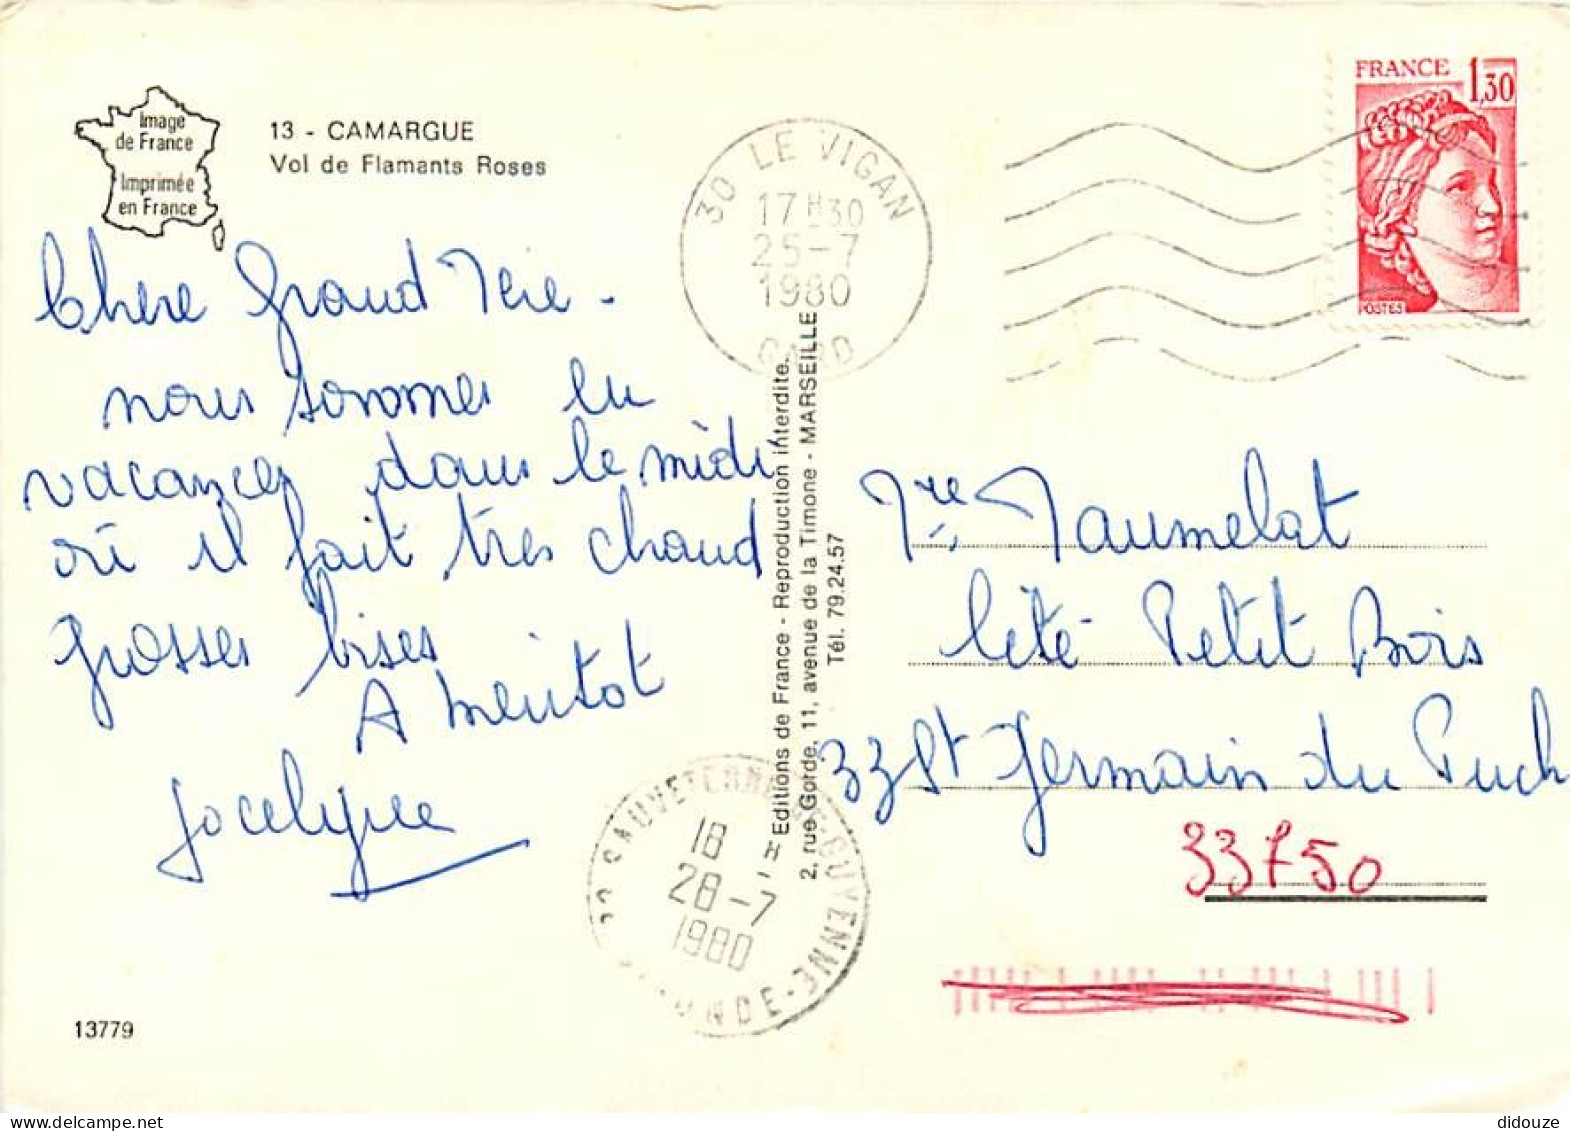 Image
de France
Imprimée
en France
13 - CAMARGUE
Vol de Flamants Roses
30 LE VIGAN
17H30
25-7
1980
GARD
FRANCE 1,30
POSTES
Chere Grand Mère -
nous sommes en
vacances dans le midi
où il fait très chaud
grosses bises
A bientot
Jocelyne
Editions de France - Reproduction interdite.
2, rue Gorde, 11, avenue de la Timone - MARSEILLE
Tél. 79.24.57
Mre Maumelat
Cité Petit Bois
33 St Germain du Puch
33750
SAUVETERRE-DE-GUYENNE
18 H
28-7
1980
GIRONDE
13779
didouze